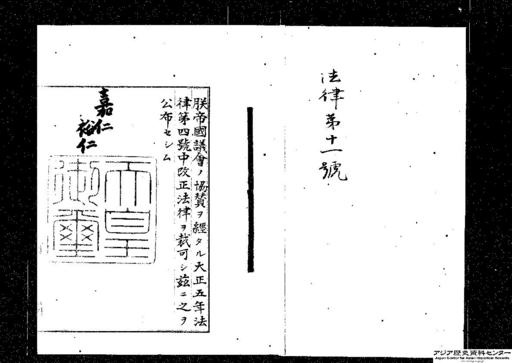 法律第十一號
朕帝國議會ノ協賛ヲ經タル大正五年法
律第四號中改正法律ヲ裁可シ茲ニ之ヲ
公布セシム
嘉仁
裕仁
天皇
御璽
アジア歴史資料センター
Japan Center for Asian Historical Records